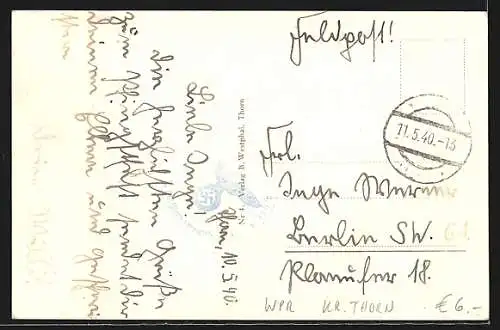 Feldpost!
11.5.40.-13
Frl.
Inge Werner
Berlin SW. 61
Planufer 18.
Thorn, 10.5.40.
Liebe Inge!
Die herzlichsten Grüße
zum Pfingstfest sendet Dir
Deinen Eltern und
Nr 1. Verlag B. Westphal, Thorn
WPR KR. THORN € 6.-